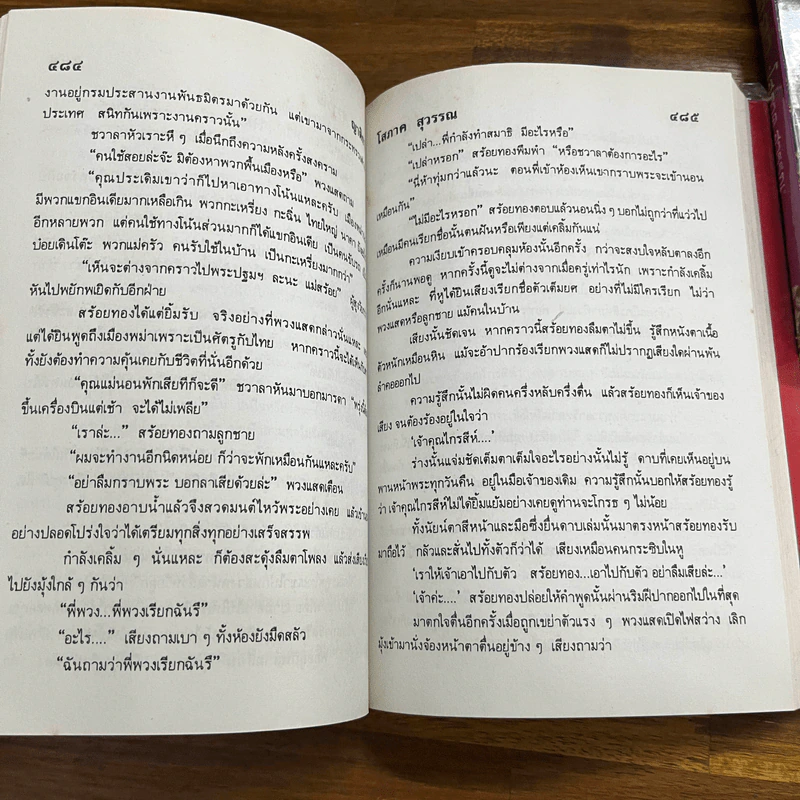 ๔๘๔
งานอยู่กรมประสานงานพันธมิตรมาด้วยกัน แต่เขามาจากกระทรวง
ประเทศ สนิทกันเพราะงานคราวนั้น”
ชวาลาหัวเราะหึ ๆ เมื่อนึกถึงความหลังครั้งสงคราม
“คนใช้สอยล่ะจ๊ะ มิต้องหาพวกพื้นเมืองหรือ” พวงแสดถาม
“คุณประเดิมเขาว่าก็ไปหาเอาทางโน้นแหละครับ
มีพวกแขกอินเดียมากเหลือเกิน พวกกะเหรี่ยง กะฉิ่น ไทยใหญ่ นาคา
อีกหลายพวก แต่คนใช้ทางโน้นส่วนมากก็ได้แขกอินเดีย เป็นคนขับรถ
บ๋อยเดินโต๊ะ พวกแม่ครัว คนรับใช้ในบ้าน เป็นกะเหรี่ยงมากกว่า”
“เห็นจะต่างจากคราวไปพระปฐมฯ ละนะ แม่สร้อย”
หันไปพยักพเยิดกับอีกฝ่าย
สร้อยทองได้แต่ยิ้มรับ จริงอย่างที่พวงแสดกล่าวนั่นแหละ
แต่ได้ยินพูดถึงเมืองพม่าเพราะเป็นศัตรูกับไทย หากคราวนี้จะได้
ทั้งยังต้องทำความคุ้นเคยกับชีวิตที่นั่นอีกด้วย
“คุณแม่นอนพักเสียทีก็จะดี” ชวาลาหันมาบอกมารดา
ขึ้นเครื่องบินแต่เช้า จะได้ไม่เพลีย”
“เราล่ะ...” สร้อยทองถามลูกชาย
“ผมจะทำงานอีกนิดหน่อย ก็ว่าจะพักเหมือนกันแหละครับ”
“อย่าลืมกราบพระ บอกลาเสียด้วยล่ะ” พวงแสดเตือน
สร้อยทองอาบน้ำแล้วจึงสวดมนต์ไหว้พระอย่างเคย แล้ว
อย่างปลอดโปร่งใจว่าได้เตรียมทุกสิ่งทุกอย่างเสร็จสรรพ
กำลังเคลิ้ม ๆ นั่นแหละ ก็ต้องสะดุ้งลืมตาโพลง แล้วส่งเสียง
ไปยังมุ้งใกล้ ๆ กันว่า
“พี่พวง...พี่พวงเรียกฉันรึ”
“อะไร....” เสียงถามเบา ๆ ทั้งห้องยังมืดสลัว
“ฉันถามว่าพี่พวงเรียกฉันรึ”
โสภาค สุวรรณ
๔๘๕
“เปล่า...พี่กำลังทำสมาธิ มีอะไรหรือ”
“เปล่าหรอก” สร้อยทองพึมพำ “หรือชวาลาต้องการอะไร”
“นี่ห้าทุ่มกว่าแล้วนะ ตอนพี่เข้าห้องเห็นเขากราบพระจะเข้านอน
เหมือนกัน”
“ไม่มีอะไรหรอก” สร้อยทองตอบแล้วนอนนิ่ง ๆ บอกไม่ถูกที่แว่วไป
เหมือนมีคนเรียกชื่อนั้นตนฝันหรือเพียงแต่เคลิ้มกันแน่
ความเงียบเข้าครอบคลุมห้องนั้นอีกครั้ง กว่าจะสงบใจหลับตาลงอีก
ครั้งก็นานพอดู หากครั้งนี้ดูจะไม่ต่างจากเมื่อครู่เท่าไรนัก เพราะกำลังเคลิ้ม
อีกนั่นแหละ ที่หูได้ยินเสียงเรียกชื่อตัวเต็มยศ อย่างที่ไม่มีใครเรียก ไม่ว่า
พวงแสดหรือลูกชาย แม้คนในบ้าน
เสียงนั้นชัดเจน หากคราวนี้สร้อยทองลืมตาไม่ขึ้น รู้สึกหนังตาเนื้อ
ตัวหนักเหมือนหิน แม้จะอ้าปากร้องเรียกพวงแสดก็ไม่ปรากฏเสียงใดผ่านพ้น
ลำคอออกไป
ความรู้สึกนั้นไม่ผิดคนครึ่งหลับครึ่งตื่น แล้วสร้อยทองก็เห็นเจ้าของ
เสียง จนต้องร้องอยู่ในใจว่า
‘เจ้าคุณไกรสีห์....’
ร่างนั้นแจ่มชัดเต็มตาเต็มใจอะไรอย่างนั้นไม่รู้ ดาบที่เคยเห็นอยู่บน
พานหน้าพระทุกวันคืน อยู่ในมือเจ้าของเดิม ความรู้สึกนั้นบอกให้สร้อยทองรู้
ว่า เจ้าคุณไกรสีห์ไม่ได้ยิ้มแย้มอย่างเคยดูท่านจะโกรธ ๆ ไม่น้อย
ทั้งนัยน์ตาสีหน้าและมือซึ่งยื่นดาบเล่มนั้นมาตรงหน้าสร้อยทองรับ
มาถือไว้ กลัวและสั่นไปทั้งตัวก็ว่าได้ เสียงเหมือนคนกระซิบในหู
‘เราให้เจ้าเอาไปกับตัว สร้อยทอง...เอาไปกับตัว อย่าลืมเสียล่ะ...’
‘เจ้าค่ะ....’ สร้อยทองปล่อยให้คำพูดนั้นผ่านริมฝีปากออกไปในที่สุด
มาตกใจตื่นอีกครั้งเมื่อถูกเขย่าตัวแรง ๆ พวงแสดเปิดไฟสว่าง เลิก
มุ้งเข้ามานั่งจ้องหน้าตาตื่นอยู่ข้าง ๆ เสียงถามว่า